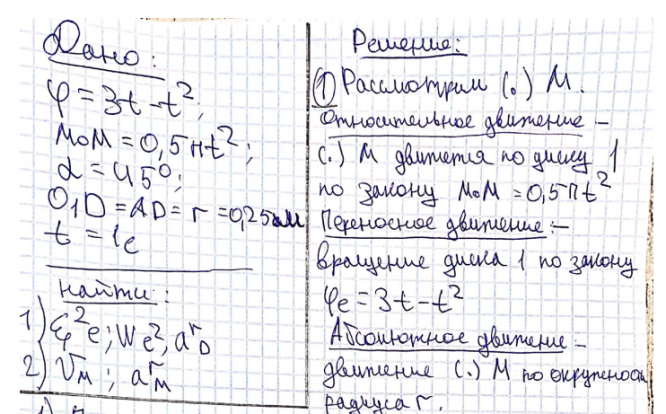 Дано:
φ = 3t - t²;
MoM = 0,5πt²;
α = 45°;
O₁D = AD = r = 0,25м
t = 1c
найти:
1) ξ²e; We²; aʳD
2) VM; aʳM
Решение:
① Рассмотрим (.) М.
Относительное движение –
(.) М движется по диску 1
по закону MoM = 0,5πt²
Переносное движение: –
вращение диска 1 по закону
φe = 3t - t²
Абсолютное движение –
движение (.) М по окружности
радиуса r.